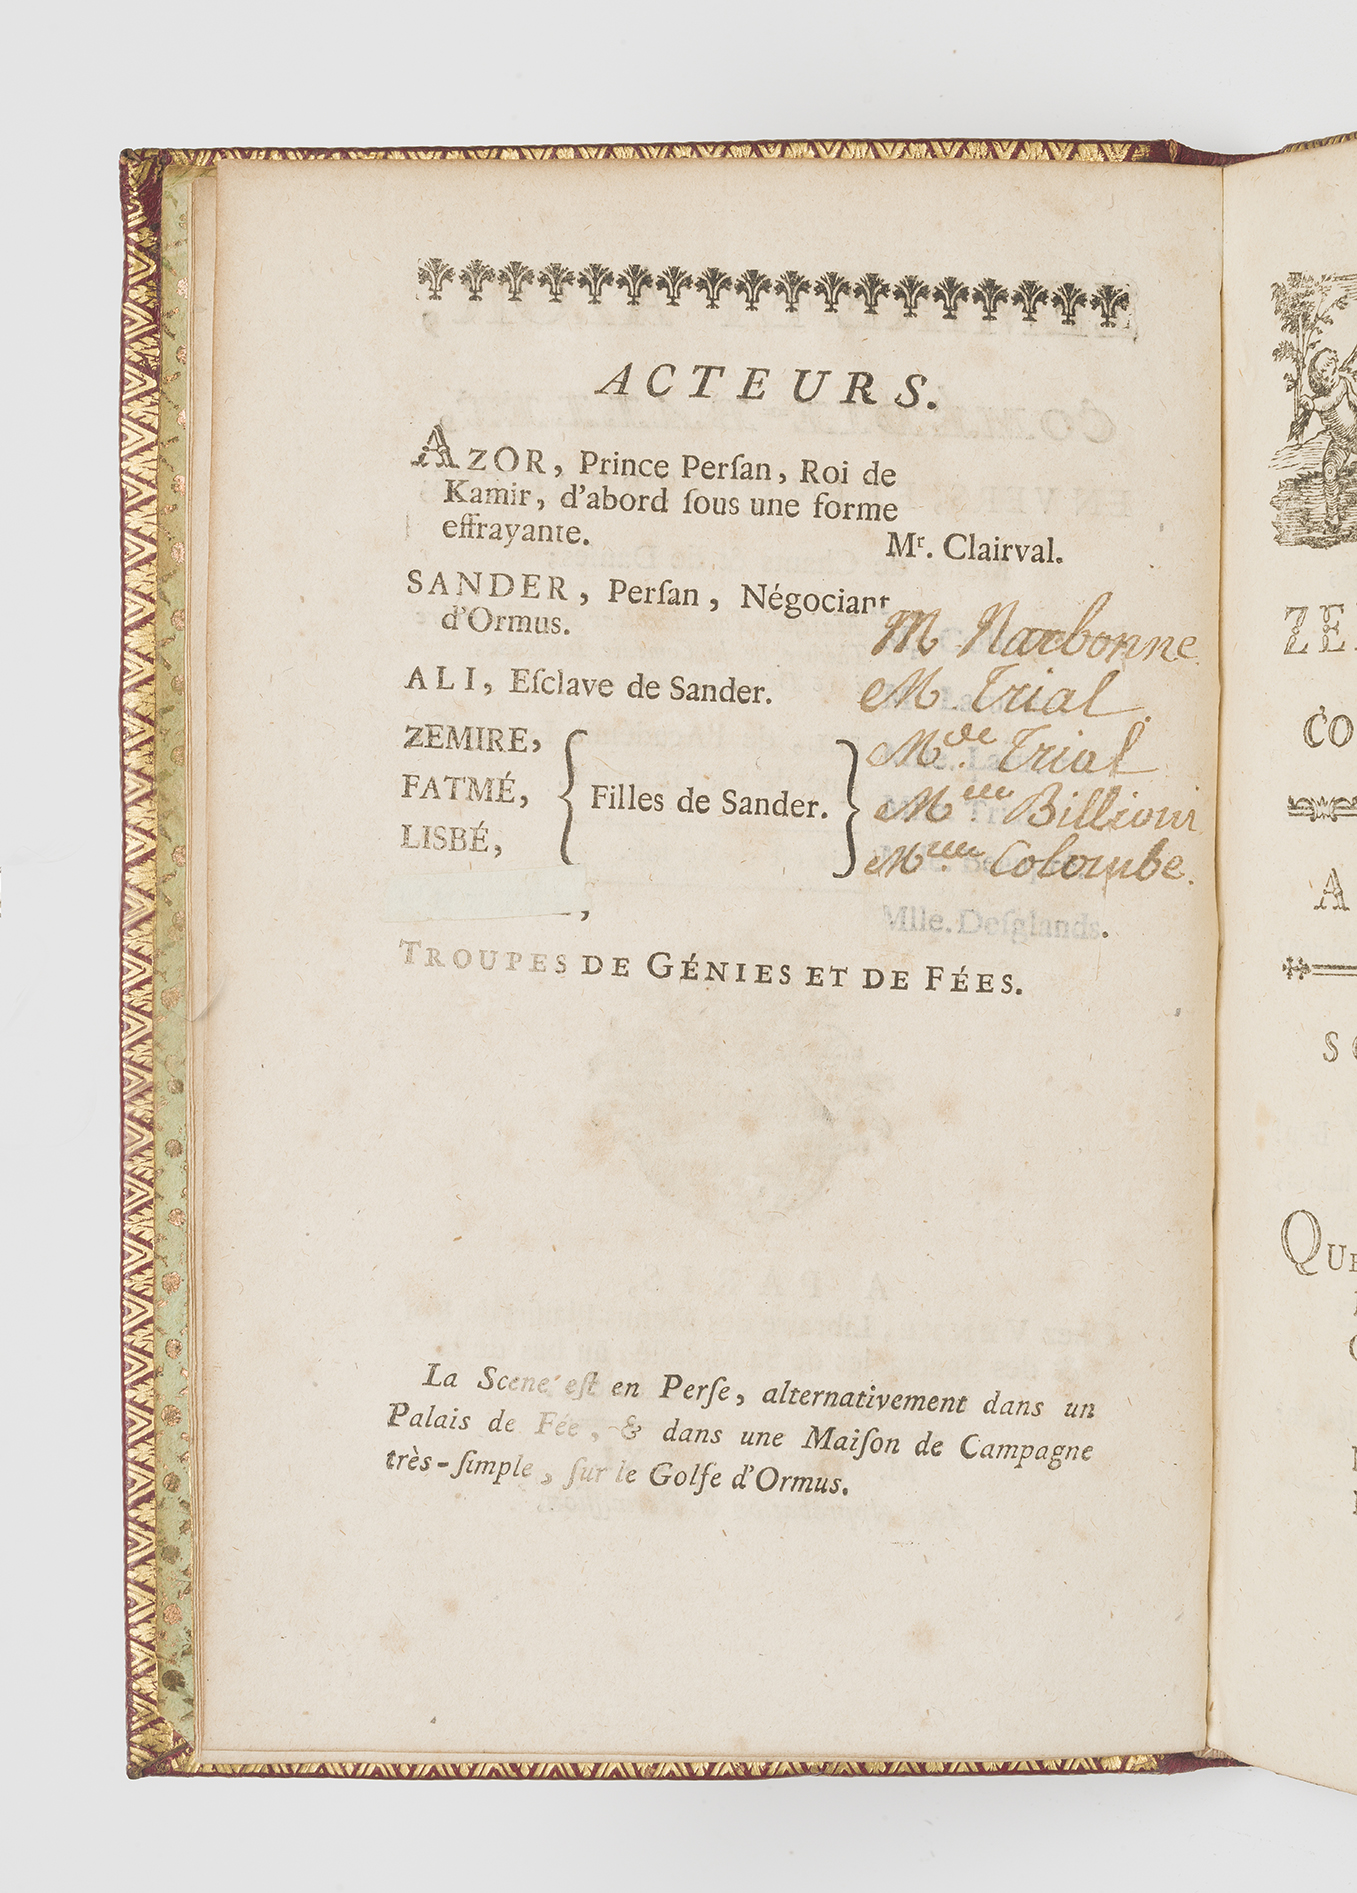 ACTEURS.
AZOR, Prince Perſan, Roi de
Kamir, d'abord ſous une forme
effrayante.
Mr. Clairval.
SANDER, Perſan, Négociant
d'Ormus.
M Narbonne.
ALI, Eſclave de Sander.
M. Trial.
ZEMIRE,
Mde. Trial
FATMÉ,
Filles de Sander.
Melle Billioni
LISBÉ,
Melle Colombe.
,
Mlle. Deſglands.
TROUPES DE GÉNIES ET DE FÉES.
La Scene eſt en Perſe, alternativement dans un
Palais de Fée, & dans une Maiſon de Campagne
très-ſimple, ſur le Golfe d'Ormus.
ZE
CO
A
S
QU